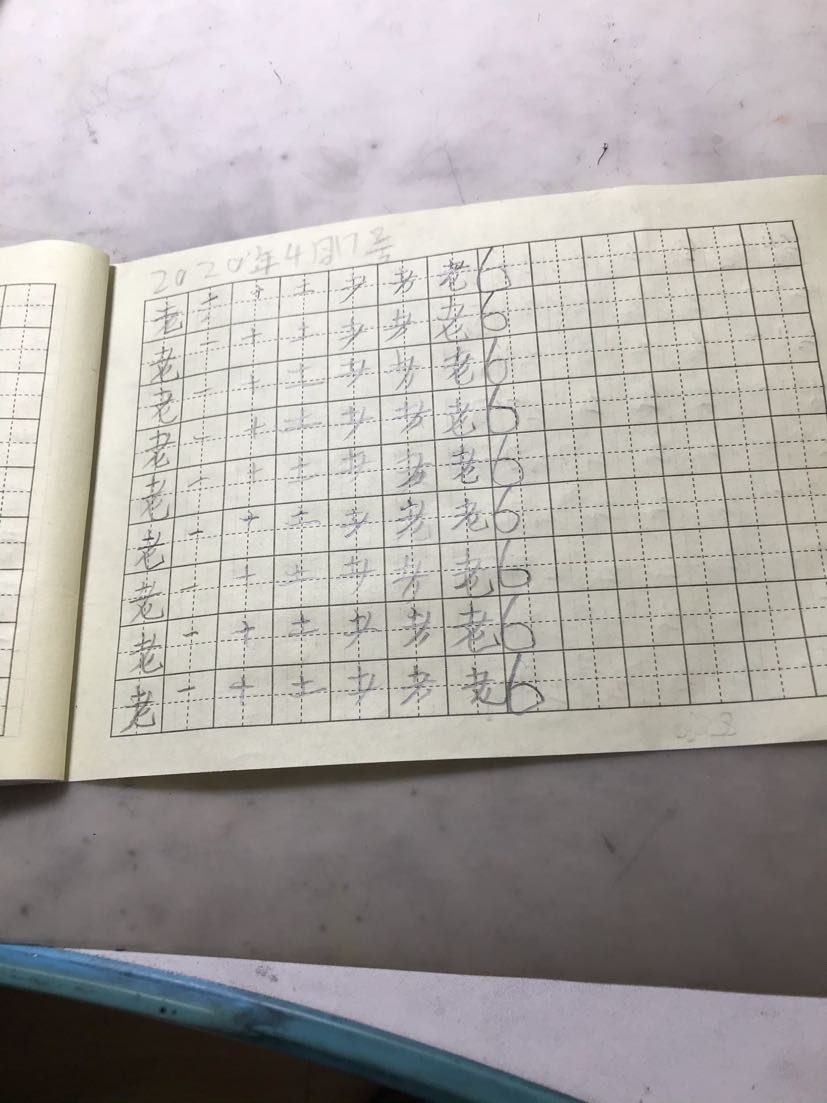 2020年4月17号
老 一 十 土 耂 耂 老 6
老 一 十 土 耂 耂 老 6
老 一 十 土 耂 耂 老 6
老 一 十 土 耂 耂 老 6
老 一 十 土 耂 耂 老 6
老 一 十 土 耂 老 老 6
老 一 十 土 耂 耂 老 6
老 一 十 土 耂 耂 老 6
老 一 十 土 耂 耂 老 6